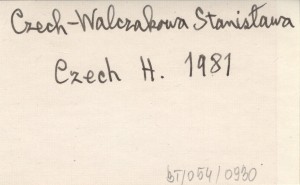 Czech-Walczakowa Stanisława
Czech H. 1981
BT/054/0930